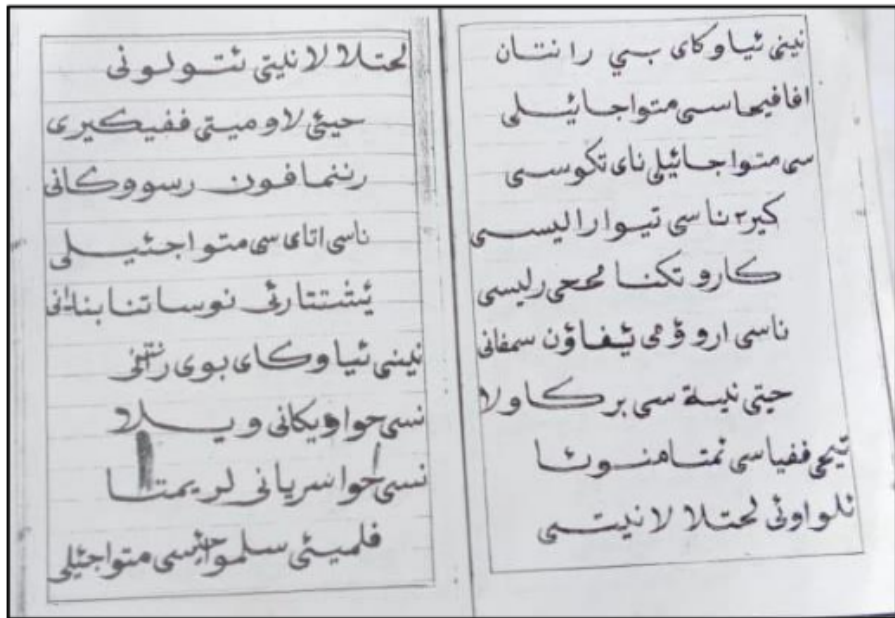 نيني ئياوكاى بسي رانتان
افافيحاسى متواجائيلى
سى متواجائيلى ناى تكوسى
كير٢ ناسى تيواراليسى
كاروتكنا محجى رليسى
ناسى اروؤمى ئيفاؤن سمفانى
حيتى نيسة سى بركاولا
تيجى ففياسى نمتاهنوئا
ئلواوئى لحتلا لانيتى
لحتلا لانيتى ئتولونى
حيئى لاوميتى ففيكيرى
رننمافون رسووكانى
ناسى اتاى سى متواجئيلى
نوساتنا
نينى ئياوكاى بوى
نسى حواويكانى ويلا
نسى حواسريانى لريمتا
فلميئى متواجئيلى